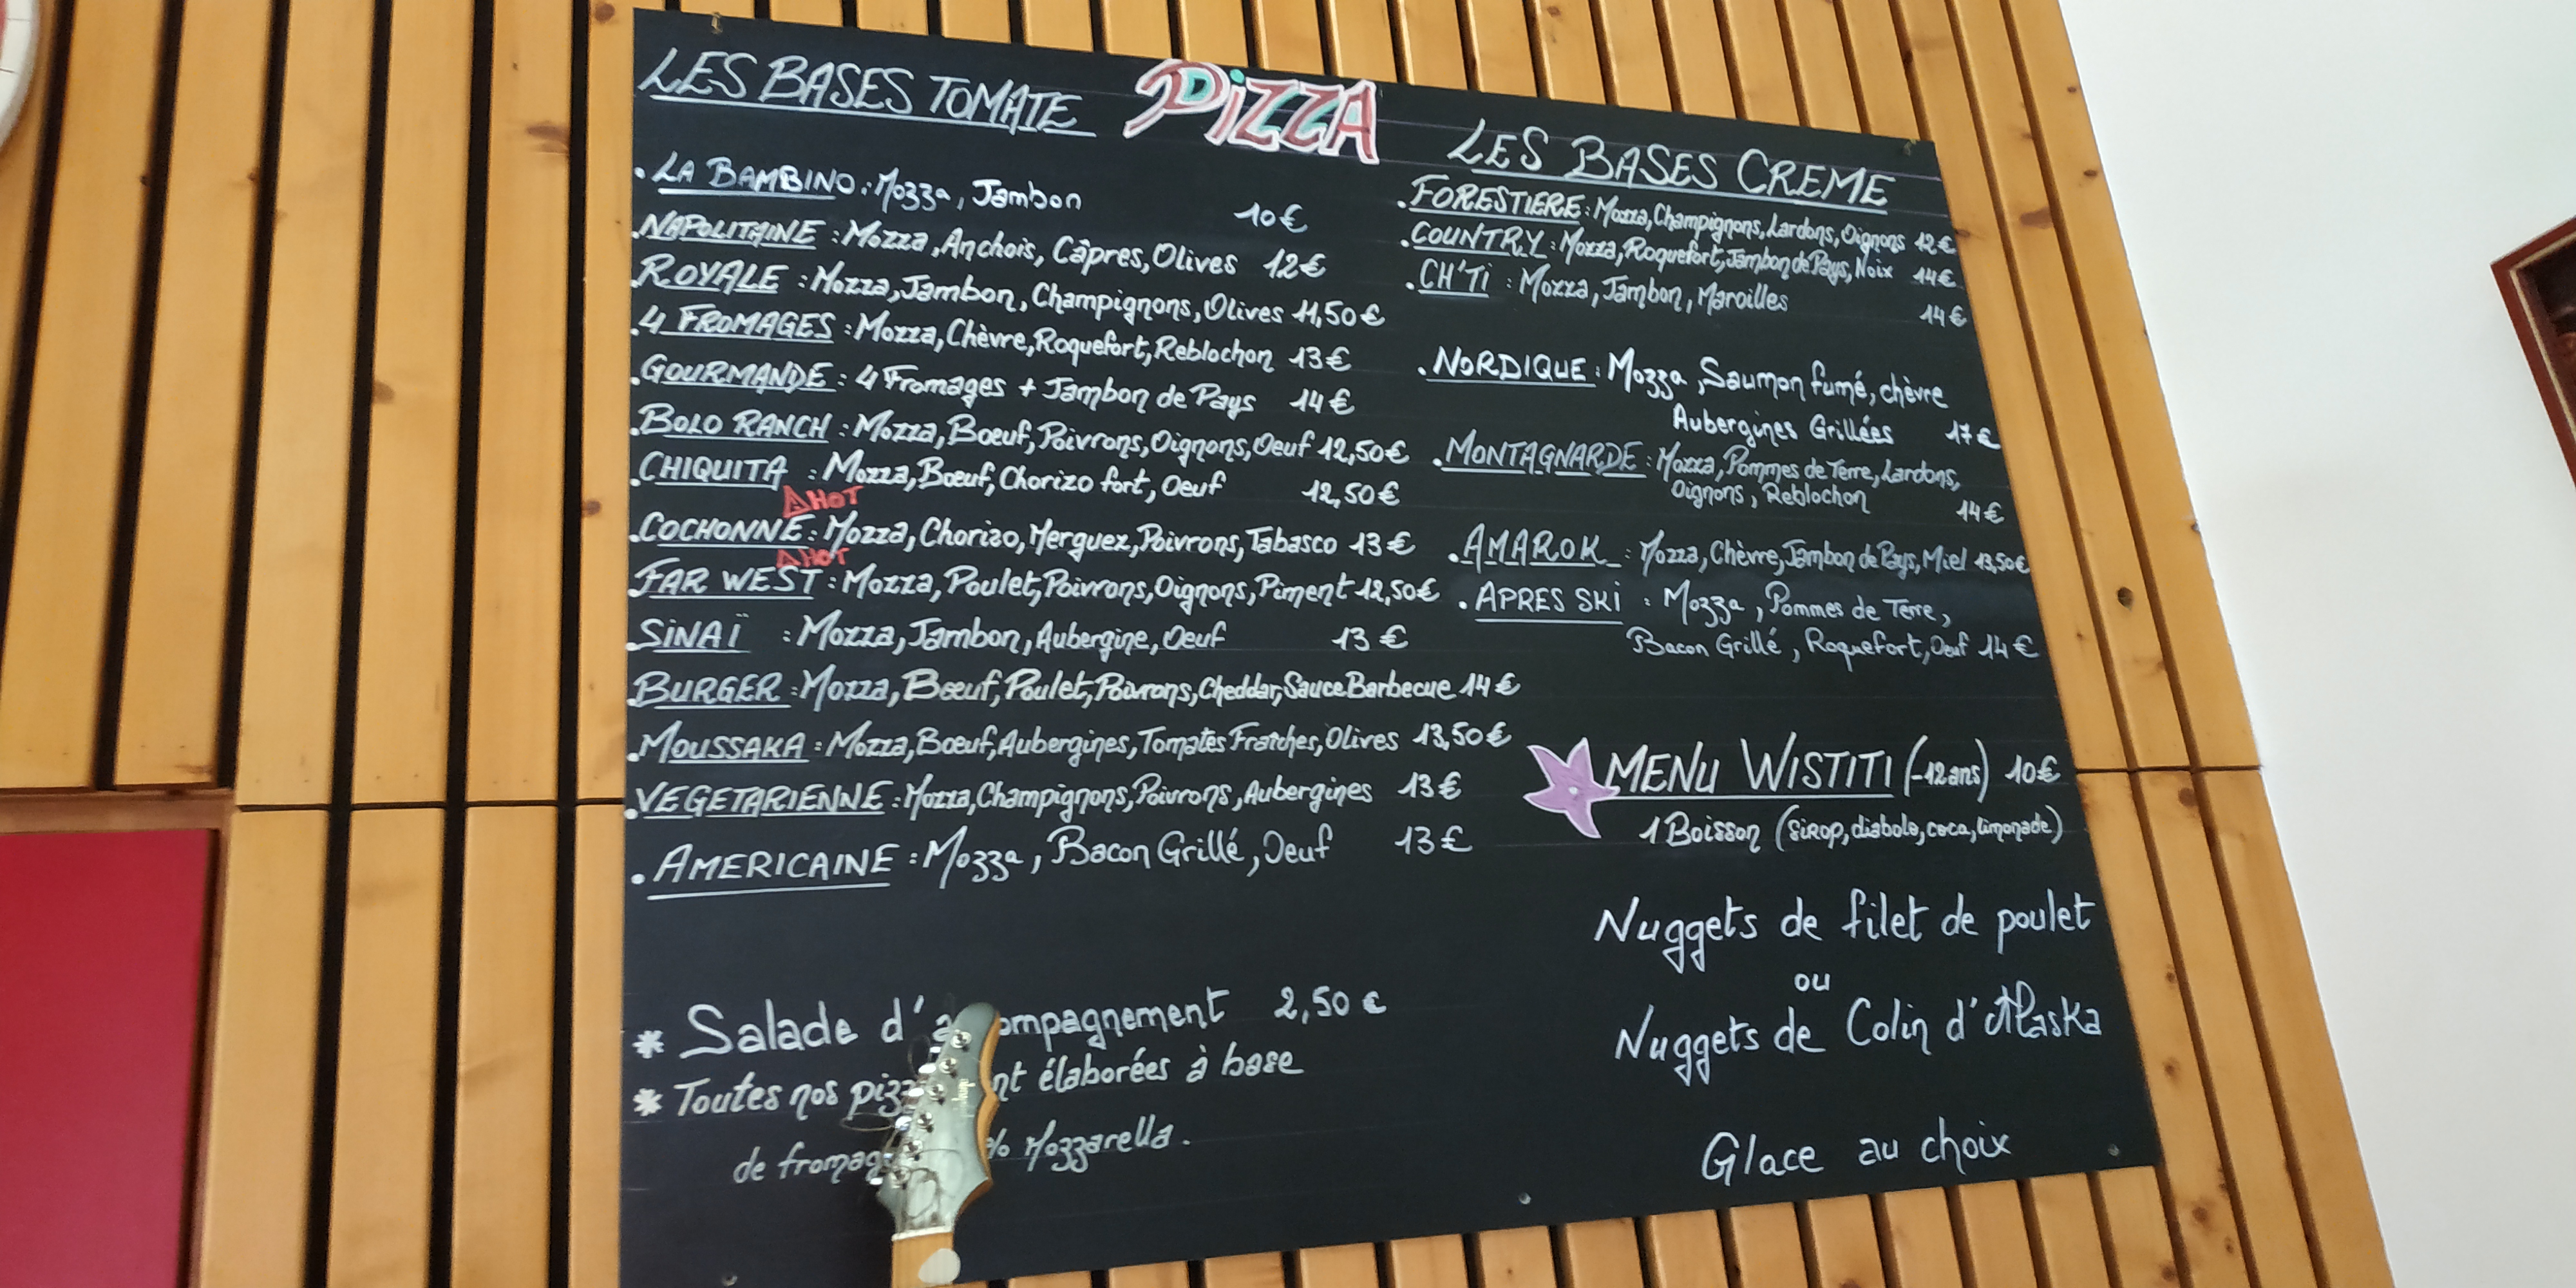 PIZZA
LES BASES TOMATE
. LA BAMBINO : Mozza, Jambon 10€
. NAPOLITAINE : Mozza, Anchois, Câpres, Olives 12€
. ROYALE : Mozza, Jambon, Champignons, Olives 11,50€
. 4 FROMAGES : Mozza, Chèvre, Roquefort, Reblochon 13€
. GOURMANDE : 4 Fromages + Jambon de Pays 14€
. BOLO RANCH : Mozza, Boeuf, Poivrons, Oignons, Oeuf 12,50€
. CHIQUITA : Mozza, Boeuf, Chorizo fort, Oeuf 12,50€
HOT
. COCHONNE : Mozza, Chorizo, Merguez, Poivrons, Tabasco 13€
HOT
. FAR WEST : Mozza, Poulet, Poivrons, Oignons, Piment 12,50€
. SINAÏ : Mozza, Jambon, Aubergine, Oeuf 13€
. BURGER : Mozza, Boeuf, Poulet, Poivrons, Cheddar, Sauce Barbecue 14€
. MOUSSAKA : Mozza, Boeuf, Aubergines, Tomates Fraîches, Olives 13,50€
. VEGETARIENNE : Mozza, Champignons, Poivrons, Aubergines 13€
. AMERICAINE : Mozza, Bacon Grillé, Oeuf 13€
* Salade d'accompagnement 2,50€
* Toutes nos élaborées à base
de Mozzarella.
LES BASES CREME
. FORESTIERE : Mozza, Champignons, Lardons, Oignons 12€
. COUNTRY : Mozza, Roquefort, Jambon de Pays, Noix 14€
. CH'TI : Mozza, Jambon, Maroilles 14€
. NORDIQUE : Mozza, Saumon fumé, chèvre
Aubergines Grillées 17€
. MONTAGNARDE : Mozza, Pommes de Terre, Lardons,
Oignons, Reblochon 14€
. AMAROK : Mozza, Chèvre, Jambon de Pays, Miel 13,50€
. APRES SKI : Mozza, Pommes de Terre,
Bacon Grillé, Roquefort, Oeuf 14€
MENU WISTITI (-12 ans) 10€
1 Boisson (Sirop, diabolo, coca, limonade)
Nuggets de filet de poulet
ou
Nuggets de Colin d'Alaska
Glace au choix